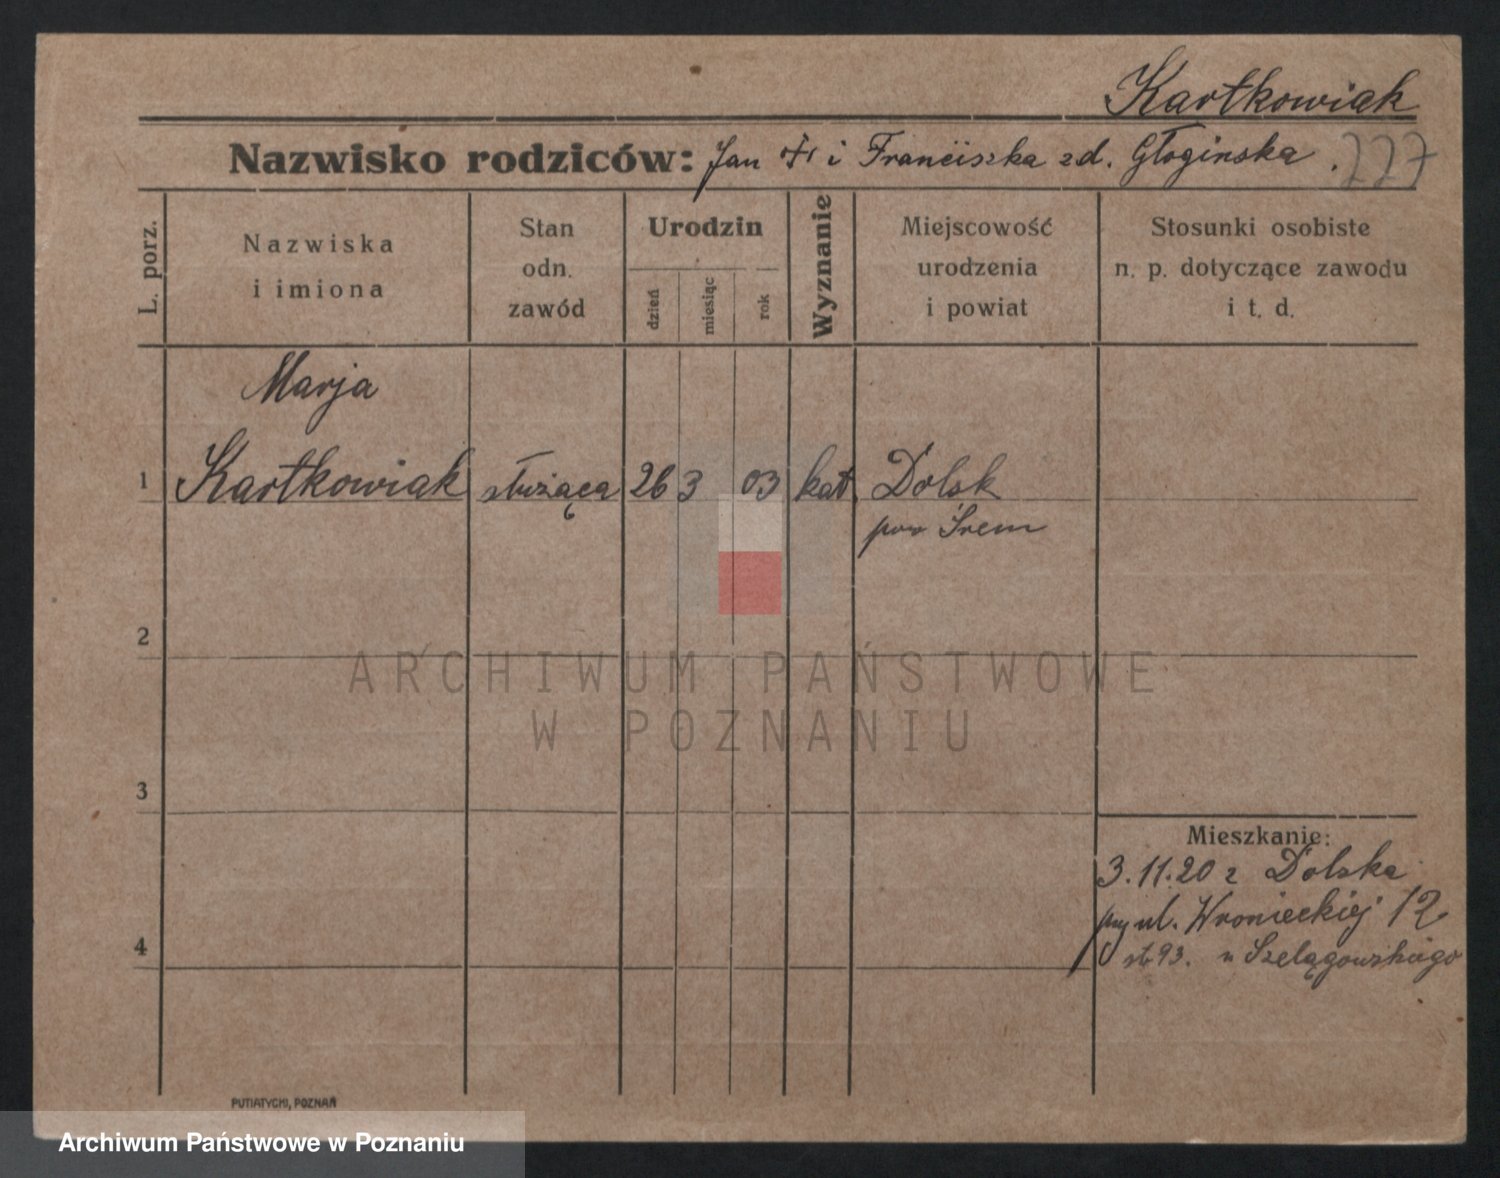 Kartkowiak
Nazwisko rodziców: Jan + i Franciszka zd. Głoginska. 227
L. porz.
Nazwiska
i imiona
Stan
odn.
zawód
Urodzin
dzień
miesiąc
rok
Wyznanie
Miejscowość
urodzenia
i powiat
Stosunki osobiste
n. p. dotyczące zawodu
i t. d.
Marja
1 Kartkowiak służąca 26 3 03 kat. Dolsk
pow Śrem
2
ARCHIWUM PAŃSTWOWE
W POZNANIU
3
Mieszkanie:
3.11.20 z Dolska
przy ul. Wronieckiej 12
4
st. 93. u Szelągowskiego
PUTIATYCKI, POZNAŃ
Archiwum Państwowe w Poznaniu